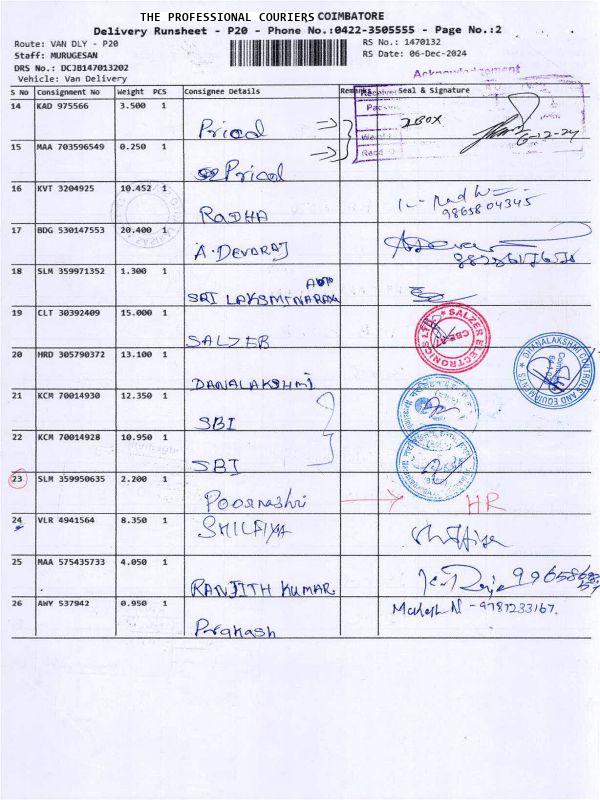 THE PROFESSIONAL COURIERS COIMBATORE
Delivery Runsheet - P20 - Phone No.:0422-3505555 - Page No.:2
Route: VAN DLY - P20
RS No.: 1470132
Staff: MURUGESAN
RS Date: 06-Dec-2024
DRS No.: DCJB147013202
Vehicle: Van Delivery
Acknowledgement
S No Consignment No Weight PCS Consignee Details Remarks Seal & Signature
14 KAD 975566 3.500 1 Pricol 2BOX 6-12-24
15 MAA 703596549 0.250 1 Pricol
16 KVT 3204925 10.452 1 RADHA 9865804345
17 BDG 530147553 20.400 1 A.DEVARAJ
18 SLM 359971352 1.300 1 SRI LAKSMINARAYA AUTO
19 CLT 30392409 15.000 1 SALZER SALZER ELECTRONICS LTD CBE-47
20 HRD 305790372 13.100 1 DANALAKSHMI DHANALAKSHMI CONTROLS AND EQUIPMENTS
21 KCM 70014930 12.350 1 SBI
22 KCM 70014928 10.950 1 SBI
23 SLM 359950635 2.200 1 Poornashri HR
24 VLR 4941564 8.350 1 SHILFIYA
25 MAA 575435733 4.050 1 RANJITH KUMAR
26 AWY 537942 0.950 1 Prakash Mahesh N - 9787233167.